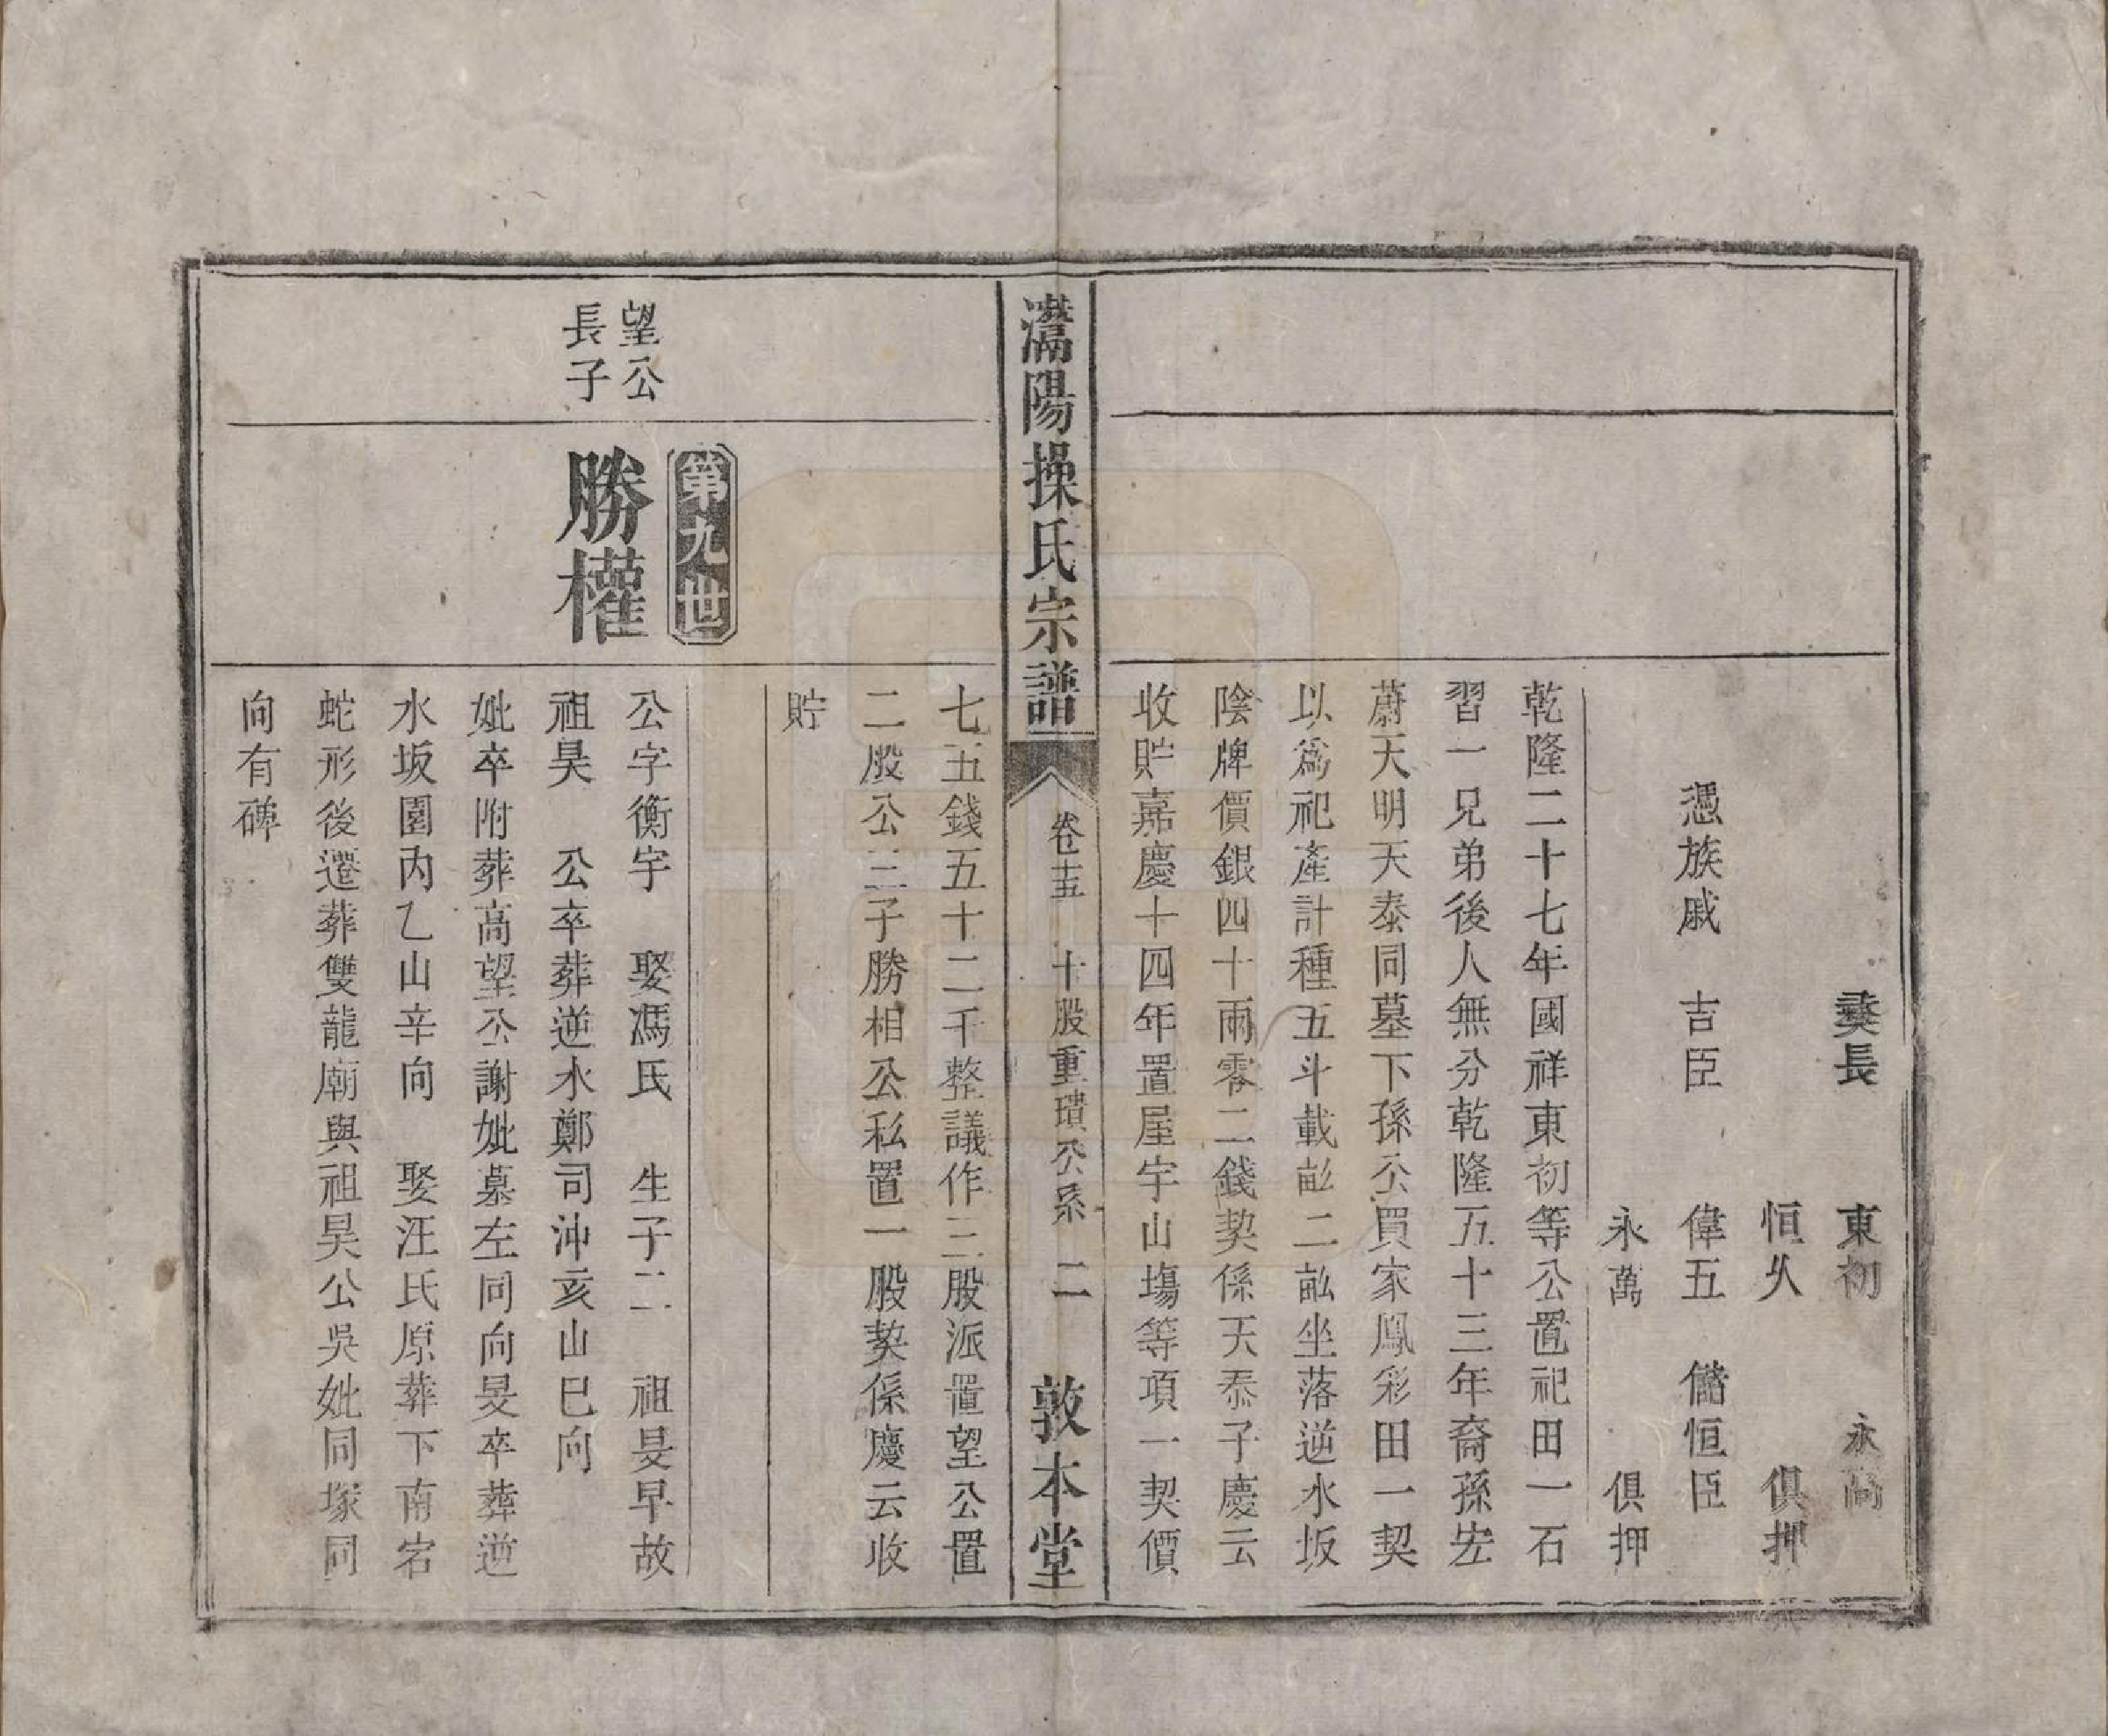 彛長　東初　永高
恒久　俱押
憑族戚　吉臣　偉五　儲恒臣
永萬　俱押
乾隆二十七年國祥東初等公置祀田一石
習一兄弟後人無分乾隆五十三年裔孫宏
蔚天明天泰同墓下孫公買家鳳彩田一契
以爲祀產計種五斗載畆二畆坐落逆水坂
陰牌價銀四十兩零二錢契係天泰子慶云
收貯嘉慶十四年置屋宇山塲等項一契價
灊陽操氏宗譜　卷十五　十股重璝公系　二　敦本堂
七五錢五十二千整議作三股派置望公置
二股公三子勝相公私置一股契係慶云收
貯
第九世
望公
長子
勝權
公字衡宇　娶馮氏　生子二　祖旻早故
祖昊　公卒葬逆水鄭司沖亥山巳向
妣卒附葬高望公謝妣墓左同向旻卒葬逆
水坂園內乙山辛向　娶汪氏原葬下南宕
蛇形後遷葬雙龍廟與祖昊公吳妣同塚同
向有碑